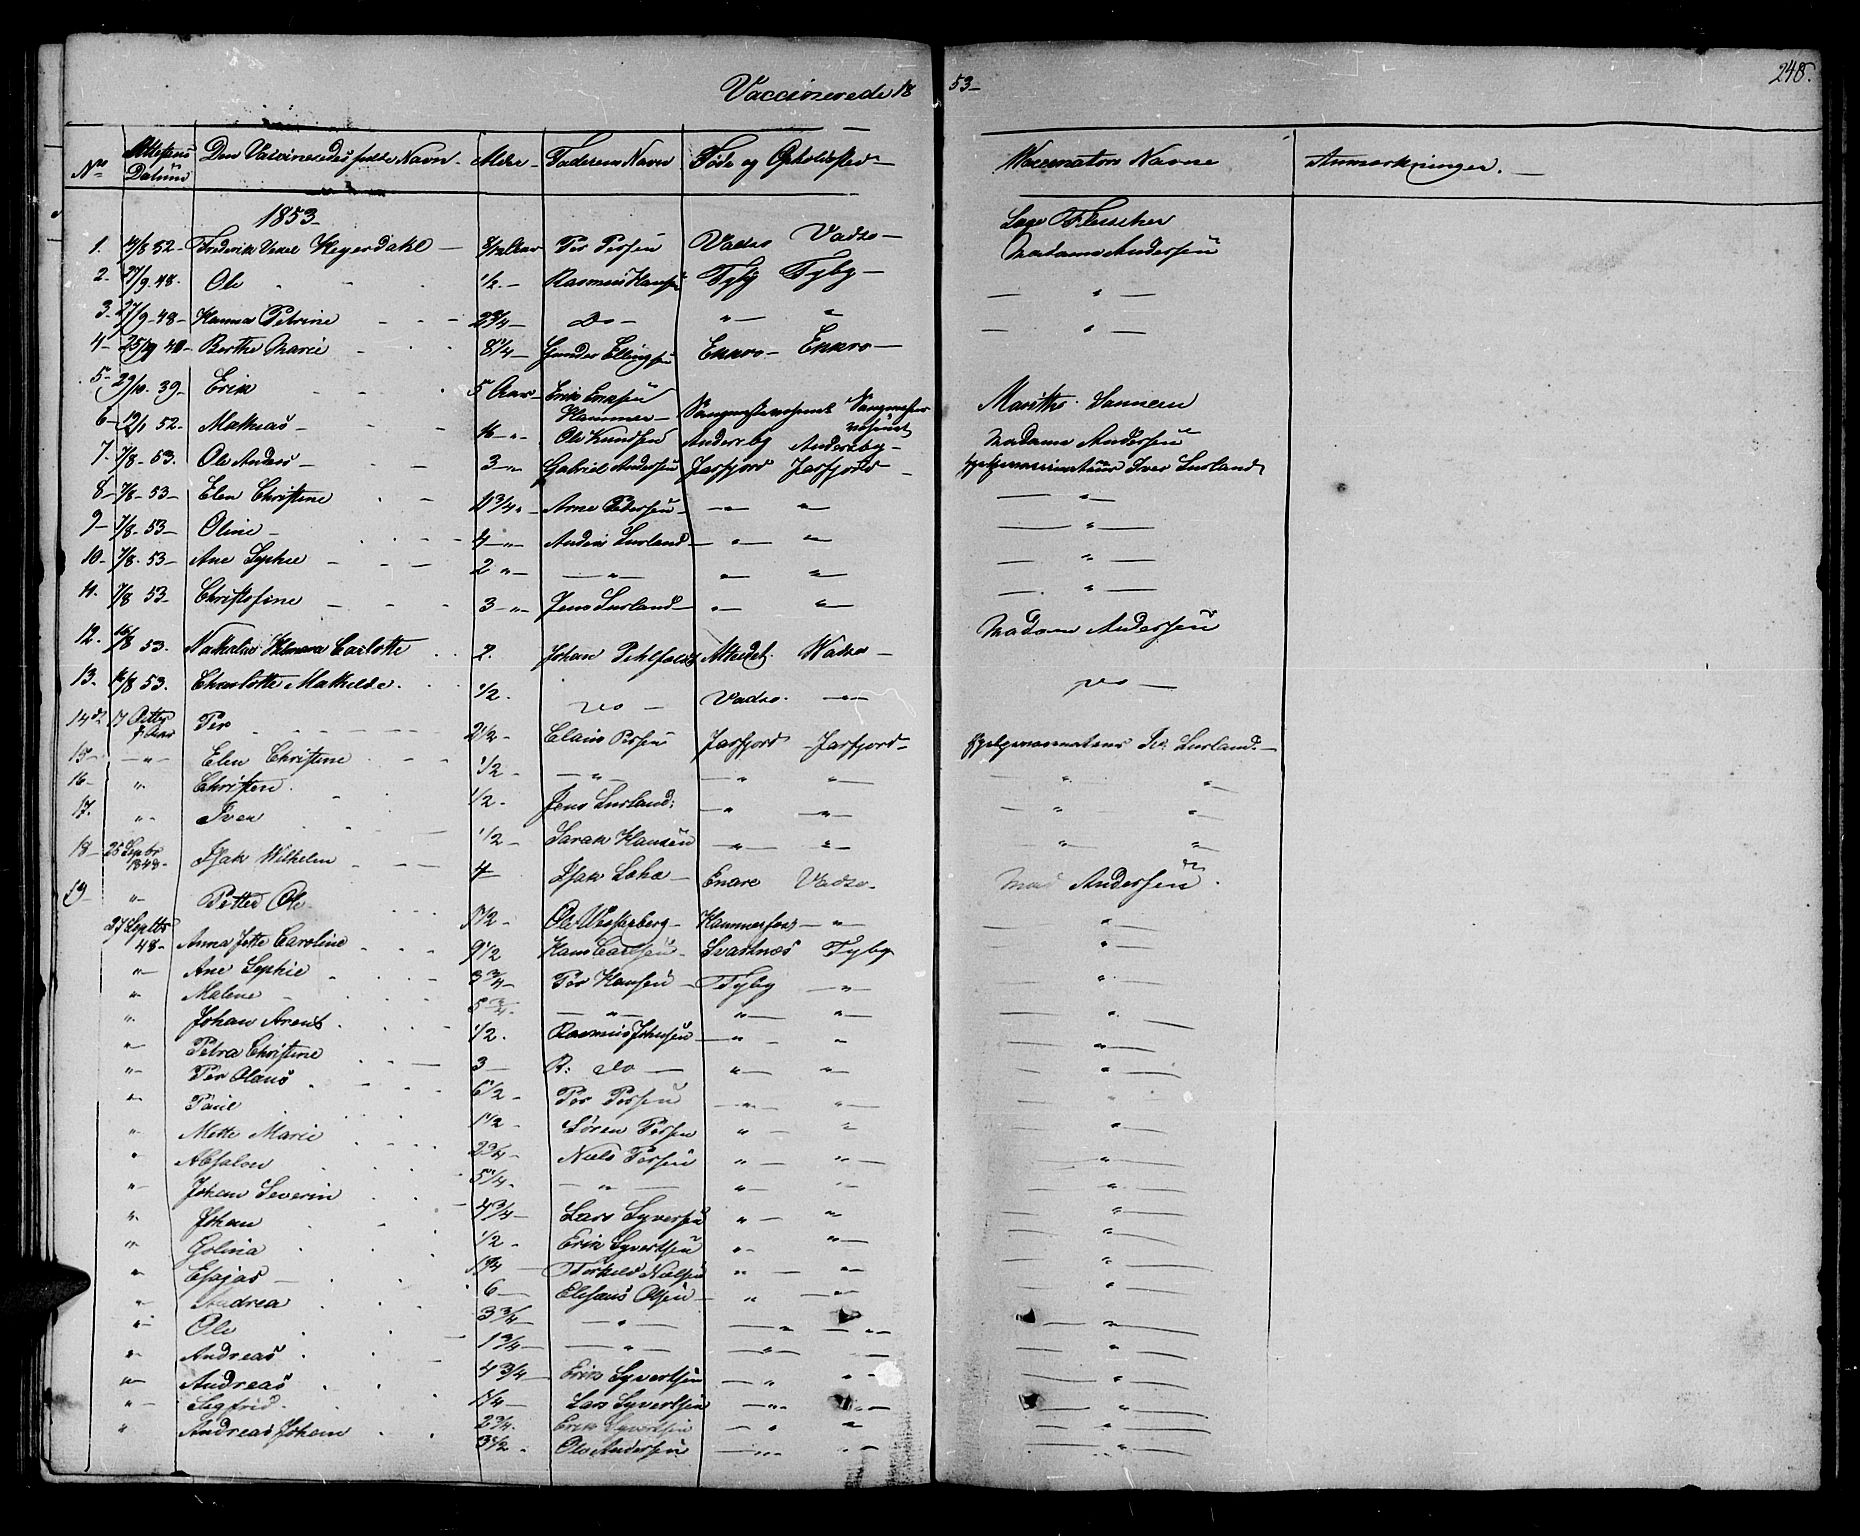 Vaccinerede 1853 248.
No Attestens Datum Den Vaccineredes fulde Navn Alder Faderens Navn Føde og Opholdssted Vaccinators Navne Anmærkninger.
1853
1. 52 Frederik Heyerdahl Per Persen Vadsø Vadsø Læge Fleischer
2. 27/9 48 Ole 1/2 Rasmus Hansen Tyby Tyby Madame Andersen
3 27/9 48 Hanna Petrine 2 3/4 do " " "
4 48 Berthe Marie 8 1/4 Gunder Ellingsen Ekkrø Ekkrø "
5 29/10 39 Erik 5 Aar Erik Eriksen Hammer
6 52 Mathias Ole Knudsen Andersby Andersby Madame Andersen
7. 7/8 53. Ole Anders 3 " Gabriel Andersen Jarfjord Jarfjord Iver Lurland
8 7/8 53 Elen Christine 1 3/4 " Arne Pedersen " " "
9 7/8 53 Oline 4 " Anders Lurland " " "
10 7/8 53 Ane Sophie 2 " " " " "
11. 7/8 53 Christofine 3 " Jens Lurland " " "
12. 16/8 53. Nathalia Carlotte 2. Johan Vadsø Madame Andersen
13. 16/8 53. Charlotte Mathilde 1/2 do Vadsø. " do
14 17 Octbr Per 2 1/2 Claus Persen Jarfjord Jarfjord Lurland
15 " Elen Christine 1/2 " " " " "
16 " Christen 1/2 Jens Lurland " " " "
17. " Iver 1/2 Sarak Hansen " " " "
18 25 Septbr 1848 Isak Wilhelm 4 Isak Enare Vadsø Mad Andersen
19 " Petter Ole Ole Westerberg Hammerfest " "
27 Septbr 48 Anna Jette Caroline 9 1/2 Hans Carlsen Svartnæs Tyby "
" Ane Sophie 3 3/4 Per Hansen Tyby " "
" Malene 5 3/4 " " " "
" Johan Arent 1/2. Rasmus Johnsen " " "
" Petra Christine 3 R: do " " "
" Per Olaus 6 1/2 Per Persen " " "
" Paul 1 1/2 Søren Persen " " "
" Mette Marie 2 3/4 Niels Persen " " "
" Absalon 5 1/4 " " " "
" Johan Severin 4 3/4 Lars Syversen " " "
" Johan 1/2 Erik Syvertsen " " "
" Golina 1 3/4 Torkeld Nielsen " " "
" Esajas 6 Elesæus Olsen " " "
" Andrea 3 3/4 " " " "
" Ole 1 3/4 " " " "
" Andreas 4 3/4 Erik Syvertsen " " "
" Andreas 1/4 Lars Syvertsen " " "
" Sigfrid 2 3/4 Erik Syvertsen " " "
" Andreas Johan 3 1/2 Ole Andersen " " "